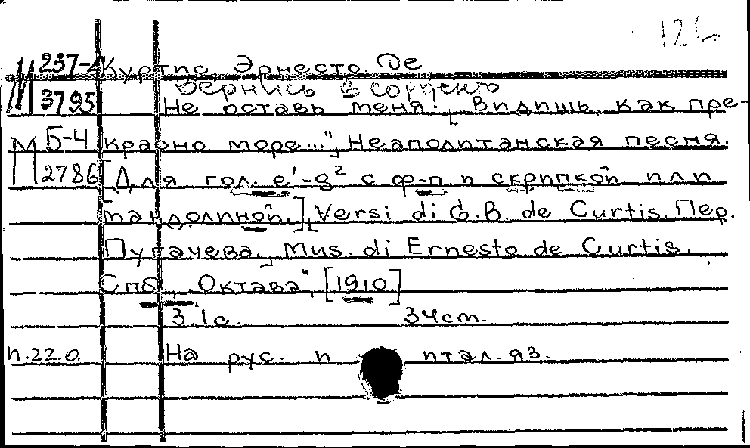 126
М 237-4 Куртис, Эрнесто Де
Вернись в Сорренто
М 3795 Не оставь меня! „Видишь, как пре-
М Б-4 красно море...", Неаполитанская песня.
2786 [Для гол. e¹-g² с ф-п и скрипкой или
мандолиной.] Versi di G.B. de Curtis. Пер.
Пугачева. Mus. di Ernesto de Curtis.
Спб, „Октава", [1910]
3 1с. 34 cm.
п.220 На рус. и итал. яз.